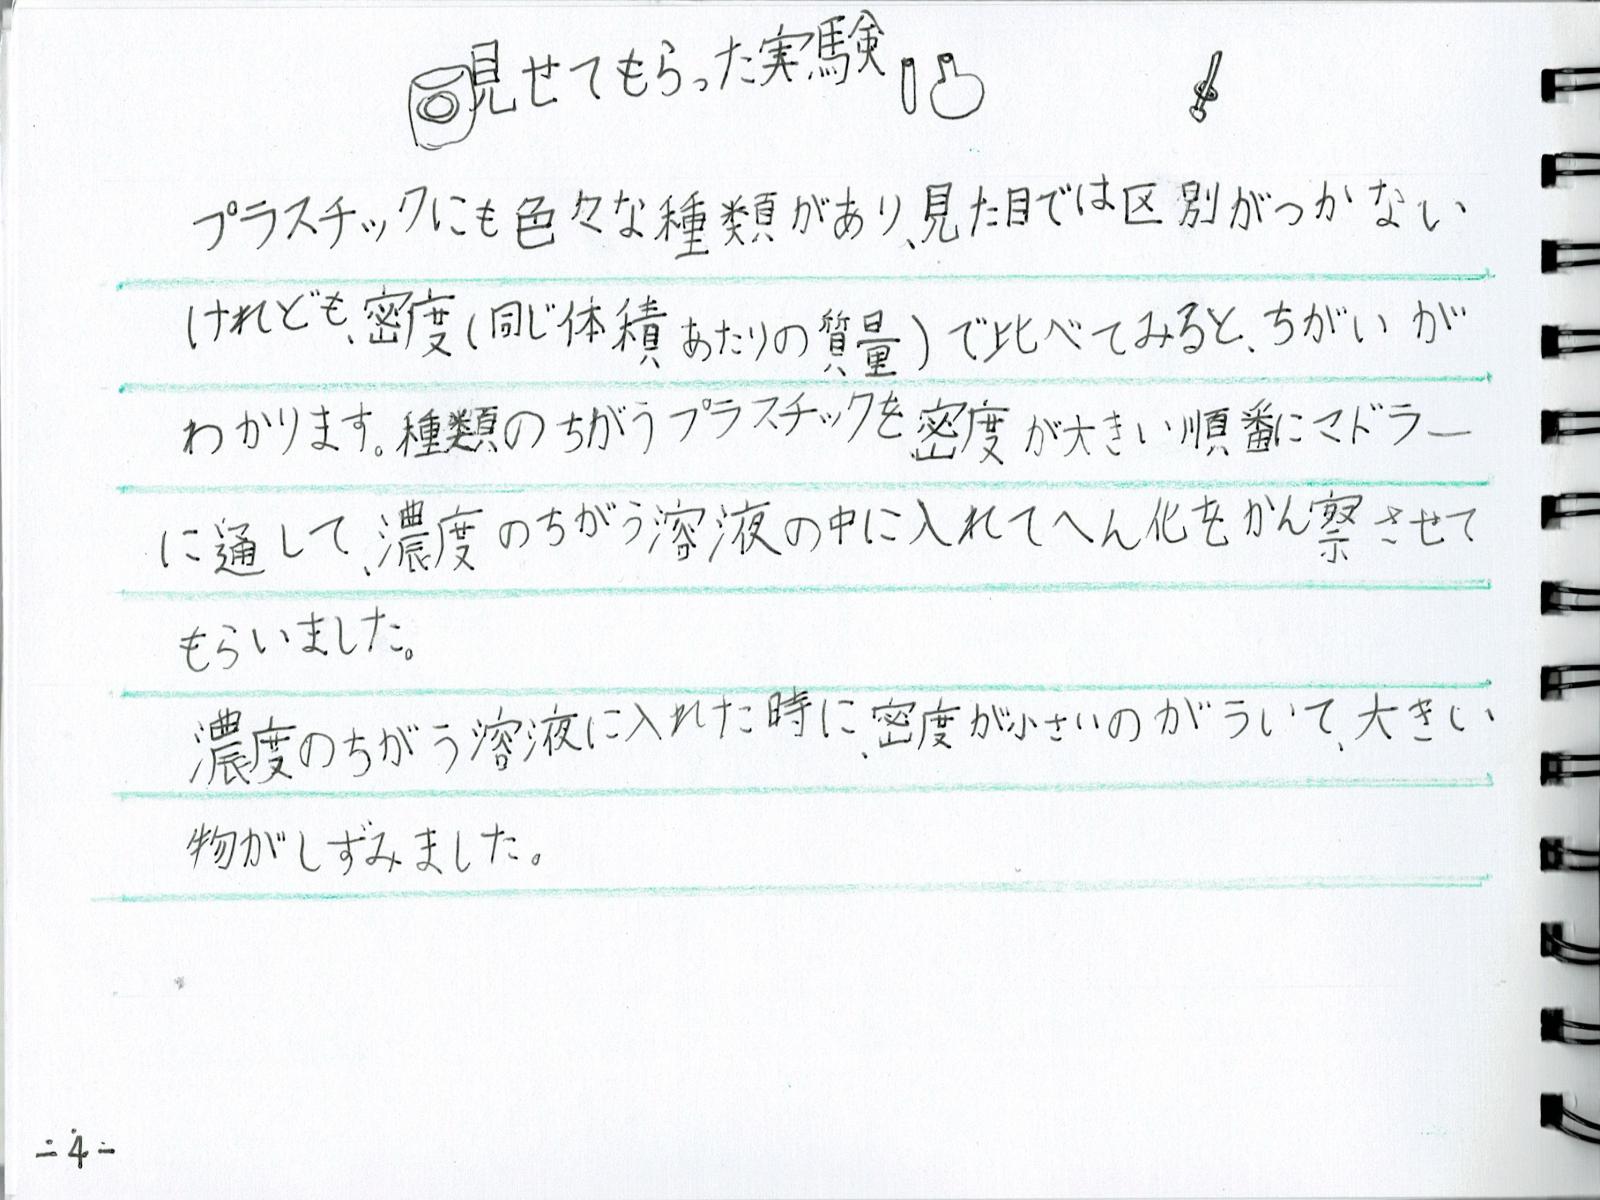 見せてもらった実験
プラスチックにも色々な種類があり、見た目では区別がつかない
けれども、密度(同じ体積あたりの質量)で比べてみると、ちがいが
わかります。種類のちがうプラスチックを密度が大きい順番にマドラー
に通して、濃度のちがう溶液の中に入れてへん化をかん察させて
もらいました。
濃度のちがう溶液に入れた時に、密度が小さいのがういて、大きい
物がしずみました。
-4-